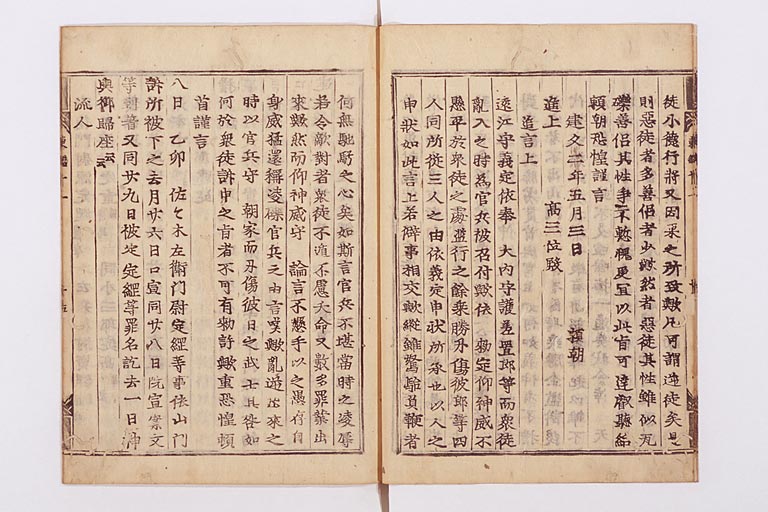 徒小德行將又因果之所致歟凡可謂違徒矣是
則惡徒者多善侶者少歟然者惡徒其性雖似瓦
礫善侶其性爭不歎哉更宜以此旨可達叡聽給
賴朝恐惶謹言
建久二年五月三日 賴朝
進上 高三位殿
追言上
遠江守義定依奉 大內守護差置郎等而衆徒
亂入之時為官兵被召付歟依 勅定仰神威不
懸平於衆徒之處濫行之餘乘勝刃傷彼郎等四
人同所從三人之由依義定申狀所承也以人之
申狀如此言上若僻事相交歟縱雖驚駘負鞭者
何無馳駑之心矣如斯言官兵不堪當時之凌辱
若令敵對者衆徒不遁不慮大命又數多罪業出
來歟然而仰神威守 綸言不懸手以之愚存自
身威猛還獨凌礫官兵之由言嘆歟亂遊出來之
時以官兵守 朝家而刃傷彼日之武士其咎如
何於衆徒訴申之旨者不可有勅許歟重恐惶頓
首謹言
八日 乙卯 佐々木左衛門尉定經等事依山門
訴所被下之去月廿六日口宣同廿八日院宣等文
等到著又同廿九日被定定經等罪名訖去一日神
輿御歸座云云
流人